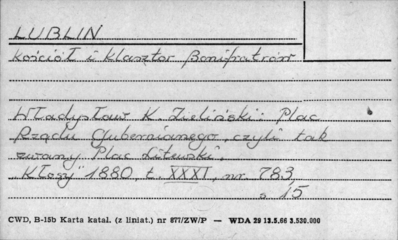 LUBLIN
kościół i klasztor Bonifratrów
Władysław K. Zieliński: Plac
Rządu Gubernianego, czyli tak
zwany Plac Litewski,
"Kłosy" 1880, t. XXXI, nr. 783,
s 15
CWD, B-15b Karta katal. (z liniat.) nr 877/ZW/P — WDA 29 13.5.66 3,520.000